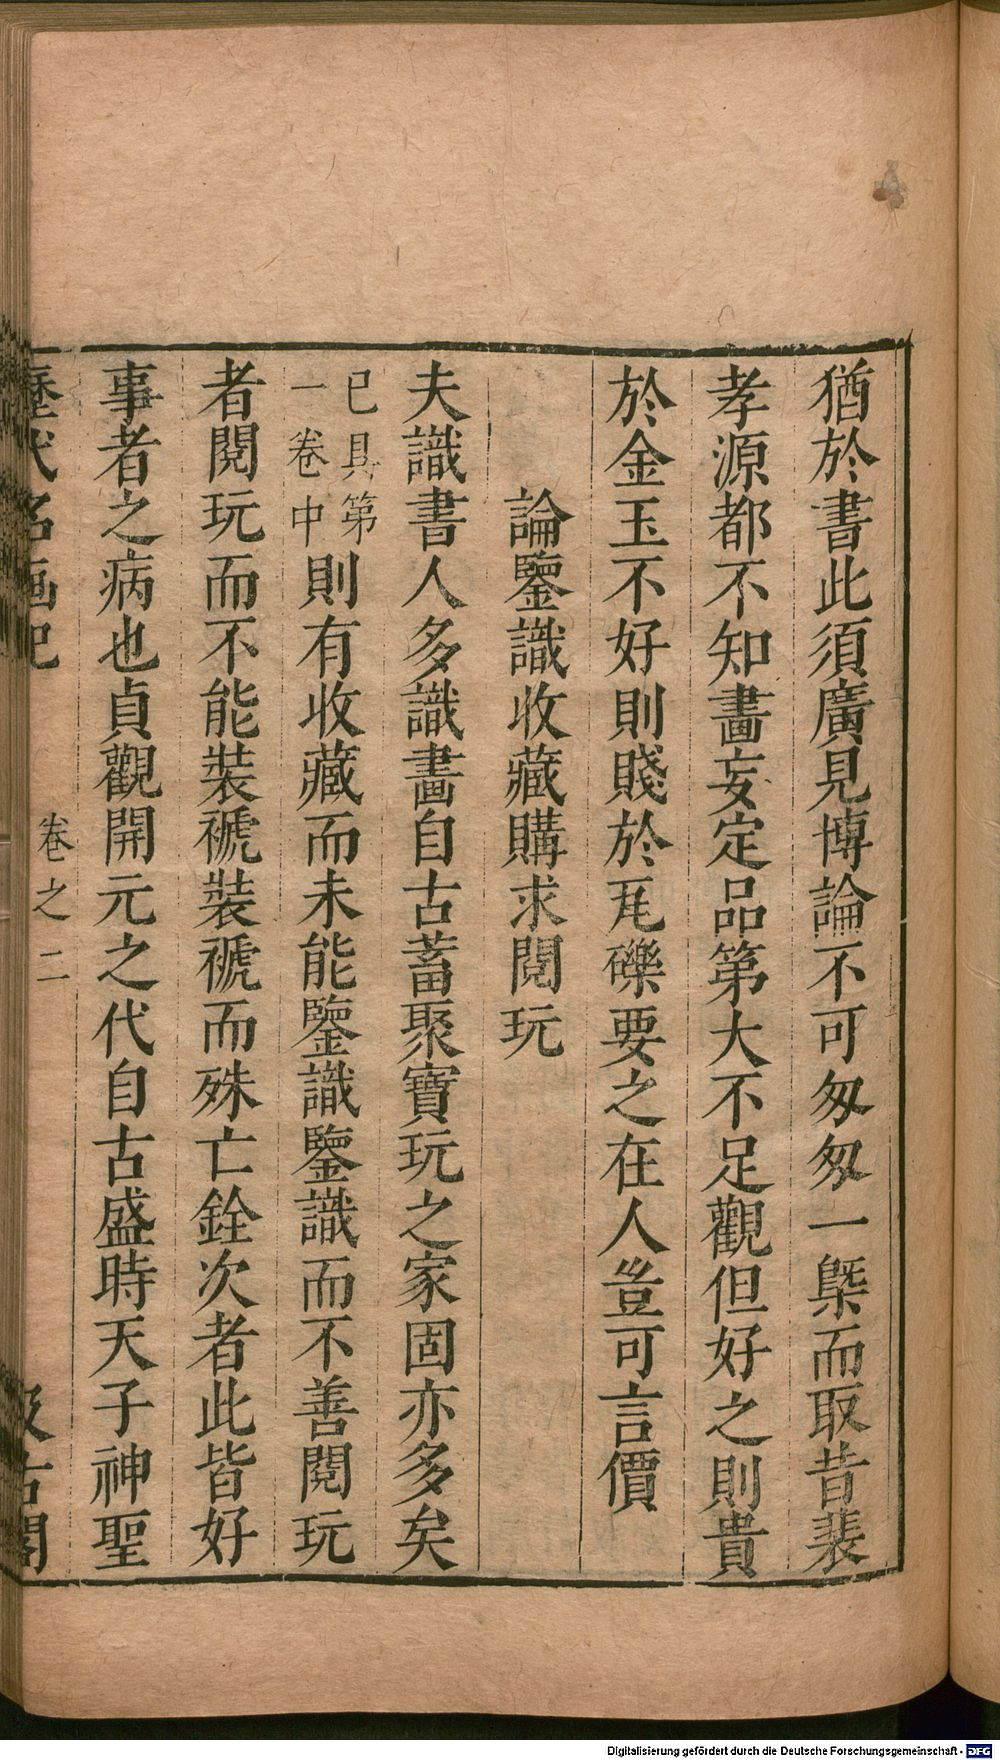 猶於書此須廣見博論不可匆匆一槩而取昔裴
孝源都不知畫妄定品第大不足觀但好之則貴
於金玉不好則賤於瓦礫要之在人豈可言價
論鑒識收藏購求閱玩
夫識書人多識畫自古蓄聚寶玩之家固亦多矣
已具第
一卷中
則有收藏而未能鑒識鑒識而不善閱玩
者閱玩而不能裝褫裝褫而殊亡銓次者此皆好
事者之病也貞觀開元之代自古盛時天子神聖
歷代名画記
卷之二
汲古閣
Digitalisierung gefördert durch die Deutsche Forschungsgemeinschaft - DFG